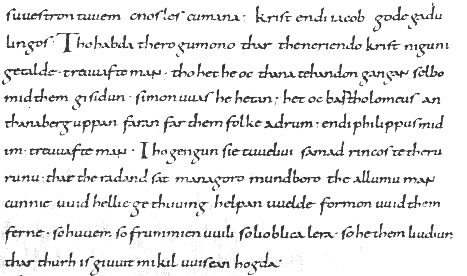 suuestron tuuem cnosles cumana · krist endi iacob gode gadu
lingos · Tho habda thero gumono thar the neriendo krist niguni
getalde · treuuafte man · tho het he oc thana tehandon gangan selbo
mid them gisidun · simon uuas he hetan; het oc bartholomeus an
thana berg uppan faran far them folke adrum · endi philippus mid
im · treuuafte man · Tho gengun sie tuueliui samad rincos te theru
runu · thar the radand sat managoro mundboro the allumu man
cunnie uuid hellie gethuuing helpan uuelde formon uuid them
ferne · so huuem so frummien uuili so lioblica lera · so he them liudiun
thar thurh is giuuit mikil uuisean hogda